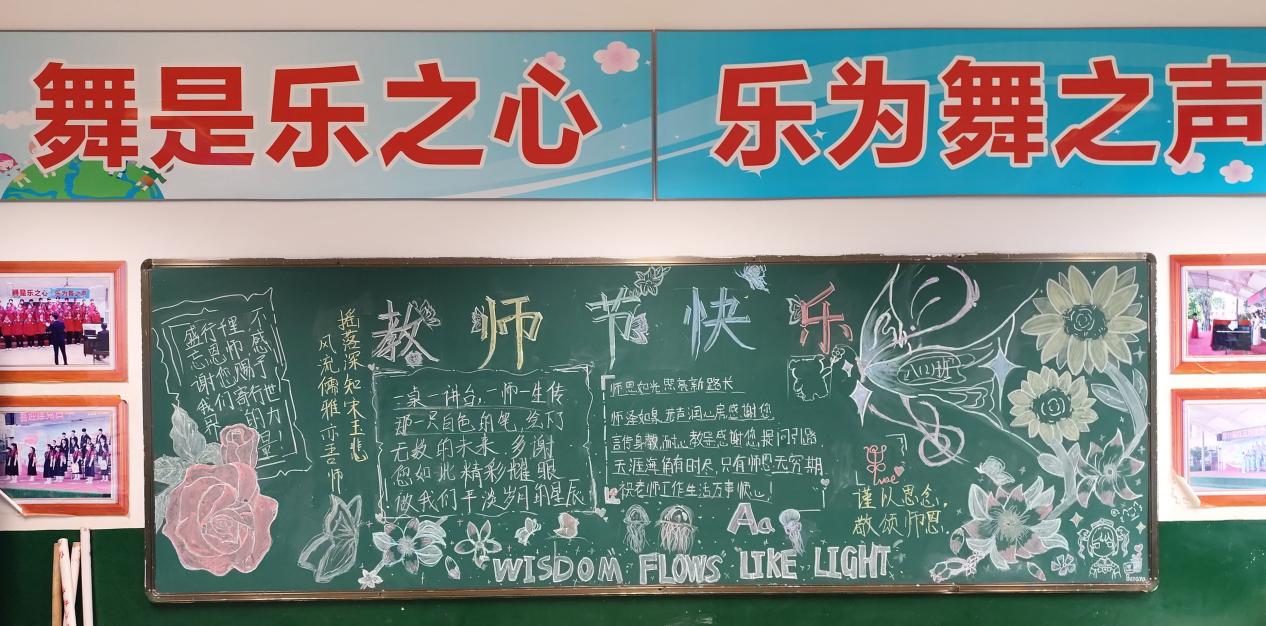 舞是乐之心
乐为舞之声
教师节快乐
不感
盛行理
忘恩师
谢您赐予
我们奔行世
界的力
量!
摇落深知宋玉悲
风流儒雅亦吾师
一桌一讲台,一师一生传
那一只白色的笔,绘下了
无数的未来,多谢
您如此精彩耀眼
做我们平淡岁月的星辰
师恩如光照亮新路长
师泽如泉无声润心房感谢您
言传身教,耐心教导感谢您,提问引路
天涯海角有时尽,只有师恩无穷期
祝老师工作生活万事顺心!
谨以思念,
敬颂师恩
Aa
WISDOM FLOWS LIKE LIGHT